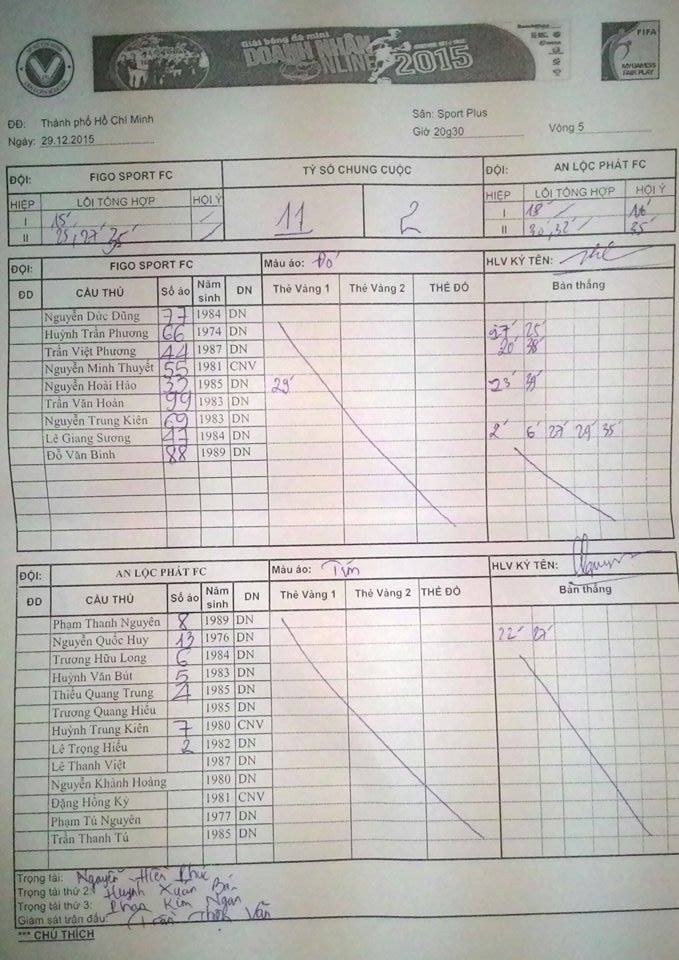 Giải bóng đá mini
DOANH NHÂN
ONLINE 2015
FIFA
MY GAME IS
FAIR PLAY
ĐĐ: Thành phố Hồ Chí Minh
Sân: Sport Plus
Ngày: 29.12.2015
Giờ 20g30
Vòng 5
ĐỘI: FIGO SPORT FC TỶ SỐ CHUNG CUỘC ĐỘI: AN LỘC PHÁT FC
HIỆP LỖI TỔNG HỢP HỘI Ý 11 2 HIỆP LỖI TỔNG HỢP HỘI Ý
I 15' I 18' 16'
II 25', 27' 35' II 30', 32' 35'
ĐỘI: FIGO SPORT FC Màu áo: Đỏ HLV KÝ TÊN:
ĐD CẦU THỦ Số áo Năm sinh DN Thẻ Vàng 1 Thẻ Vàng 2 THẺ ĐỎ Bàn thắng
Nguyễn Đức Dũng 77 1984 DN
Huỳnh Trần Phương 66 1974 DN 27' 25'
Trần Việt Phương 44 1987 DN 20' 38'
Nguyễn Minh Thuyết 55 1981 CNV
Nguyễn Hoài Hảo 32 1985 DN 29' 23' 39'
Trần Văn Hoàn 99 1983 DN
Nguyễn Trung Kiên 69 1983 DN
Lê Giang Sương 47 1984 DN 2' 6' 27' 29' 35'
Đỗ Văn Bình 88 1989 DN
ĐỘI: AN LỘC PHÁT FC Màu áo: Tím HLV KÝ TÊN:
ĐD CẦU THỦ Số áo Năm sinh DN Thẻ Vàng 1 Thẻ Vàng 2 THẺ ĐỎ Bàn thắng
Phạm Thanh Nguyên 8 1989 DN
Nguyễn Quốc Huy 13 1976 DN 22' 27'
Trương Hữu Long 6 1984 DN
Huỳnh Văn Bút 5 1983 DN
Thiều Quang Trung 4 1985 DN
Trương Quang Hiếu 1985 DN
Huỳnh Trung Kiên 7 1980 CNV
Lê Trọng Hiếu 2 1982 DN
Lê Thanh Việt 1987 DN
Nguyễn Khánh Hoàng 1980 DN
Đặng Hồng Kỳ 1981 CNV
Phạm Tú Nguyên 1977 DN
Trần Thanh Tú 1985 DN
Trọng tài: Nguyễn Hiền Phúc
Trọng tài thứ 2: Huỳnh Xuân
Trọng tài thứ 3: Phan Kim Ngân
Giám sát trận đấu: Trần Văn
*** CHÚ THÍCH